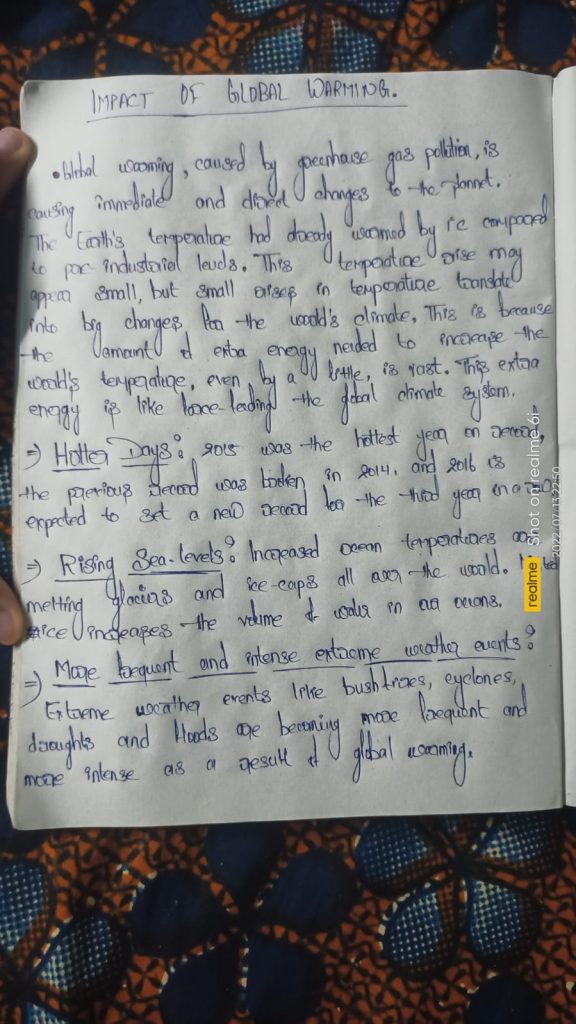 IMPACT OF GLOBAL WARMING.
• Global warming, caused by greenhouse gas pollution, is
causing immediate and direct changes to the plannet.
The Earth's temperature had already warmed by 1°c compared
to pre-industorial levels. This temperature rise may
appear small, but small rises in temperature translate
into big changes for the world's climate. This is because
the amount of extra energy needed to increase the
world's temperature, even by a little, is vast. This extra
energy is like force-feeding the global climate system.
⇒ Hotter Days: 2015 was the hottest year on record,
the previous record was broken in 2014, and 2016 is
expected to set a new record for the third year in a
⇒ Rising Sea-levels: Increased ocean temperatures are
melting glaciers and ice-caps all over the world.
ice increases the volume of water in our oceans.
⇒ More frequent and intense extreme weather events:
Extreme weather events like bushfires, cyclones,
droughts and floods are becoming more frequent and
more intense as a result of global warming.
realme Shot on realme 6i
2022/07/13 22:50